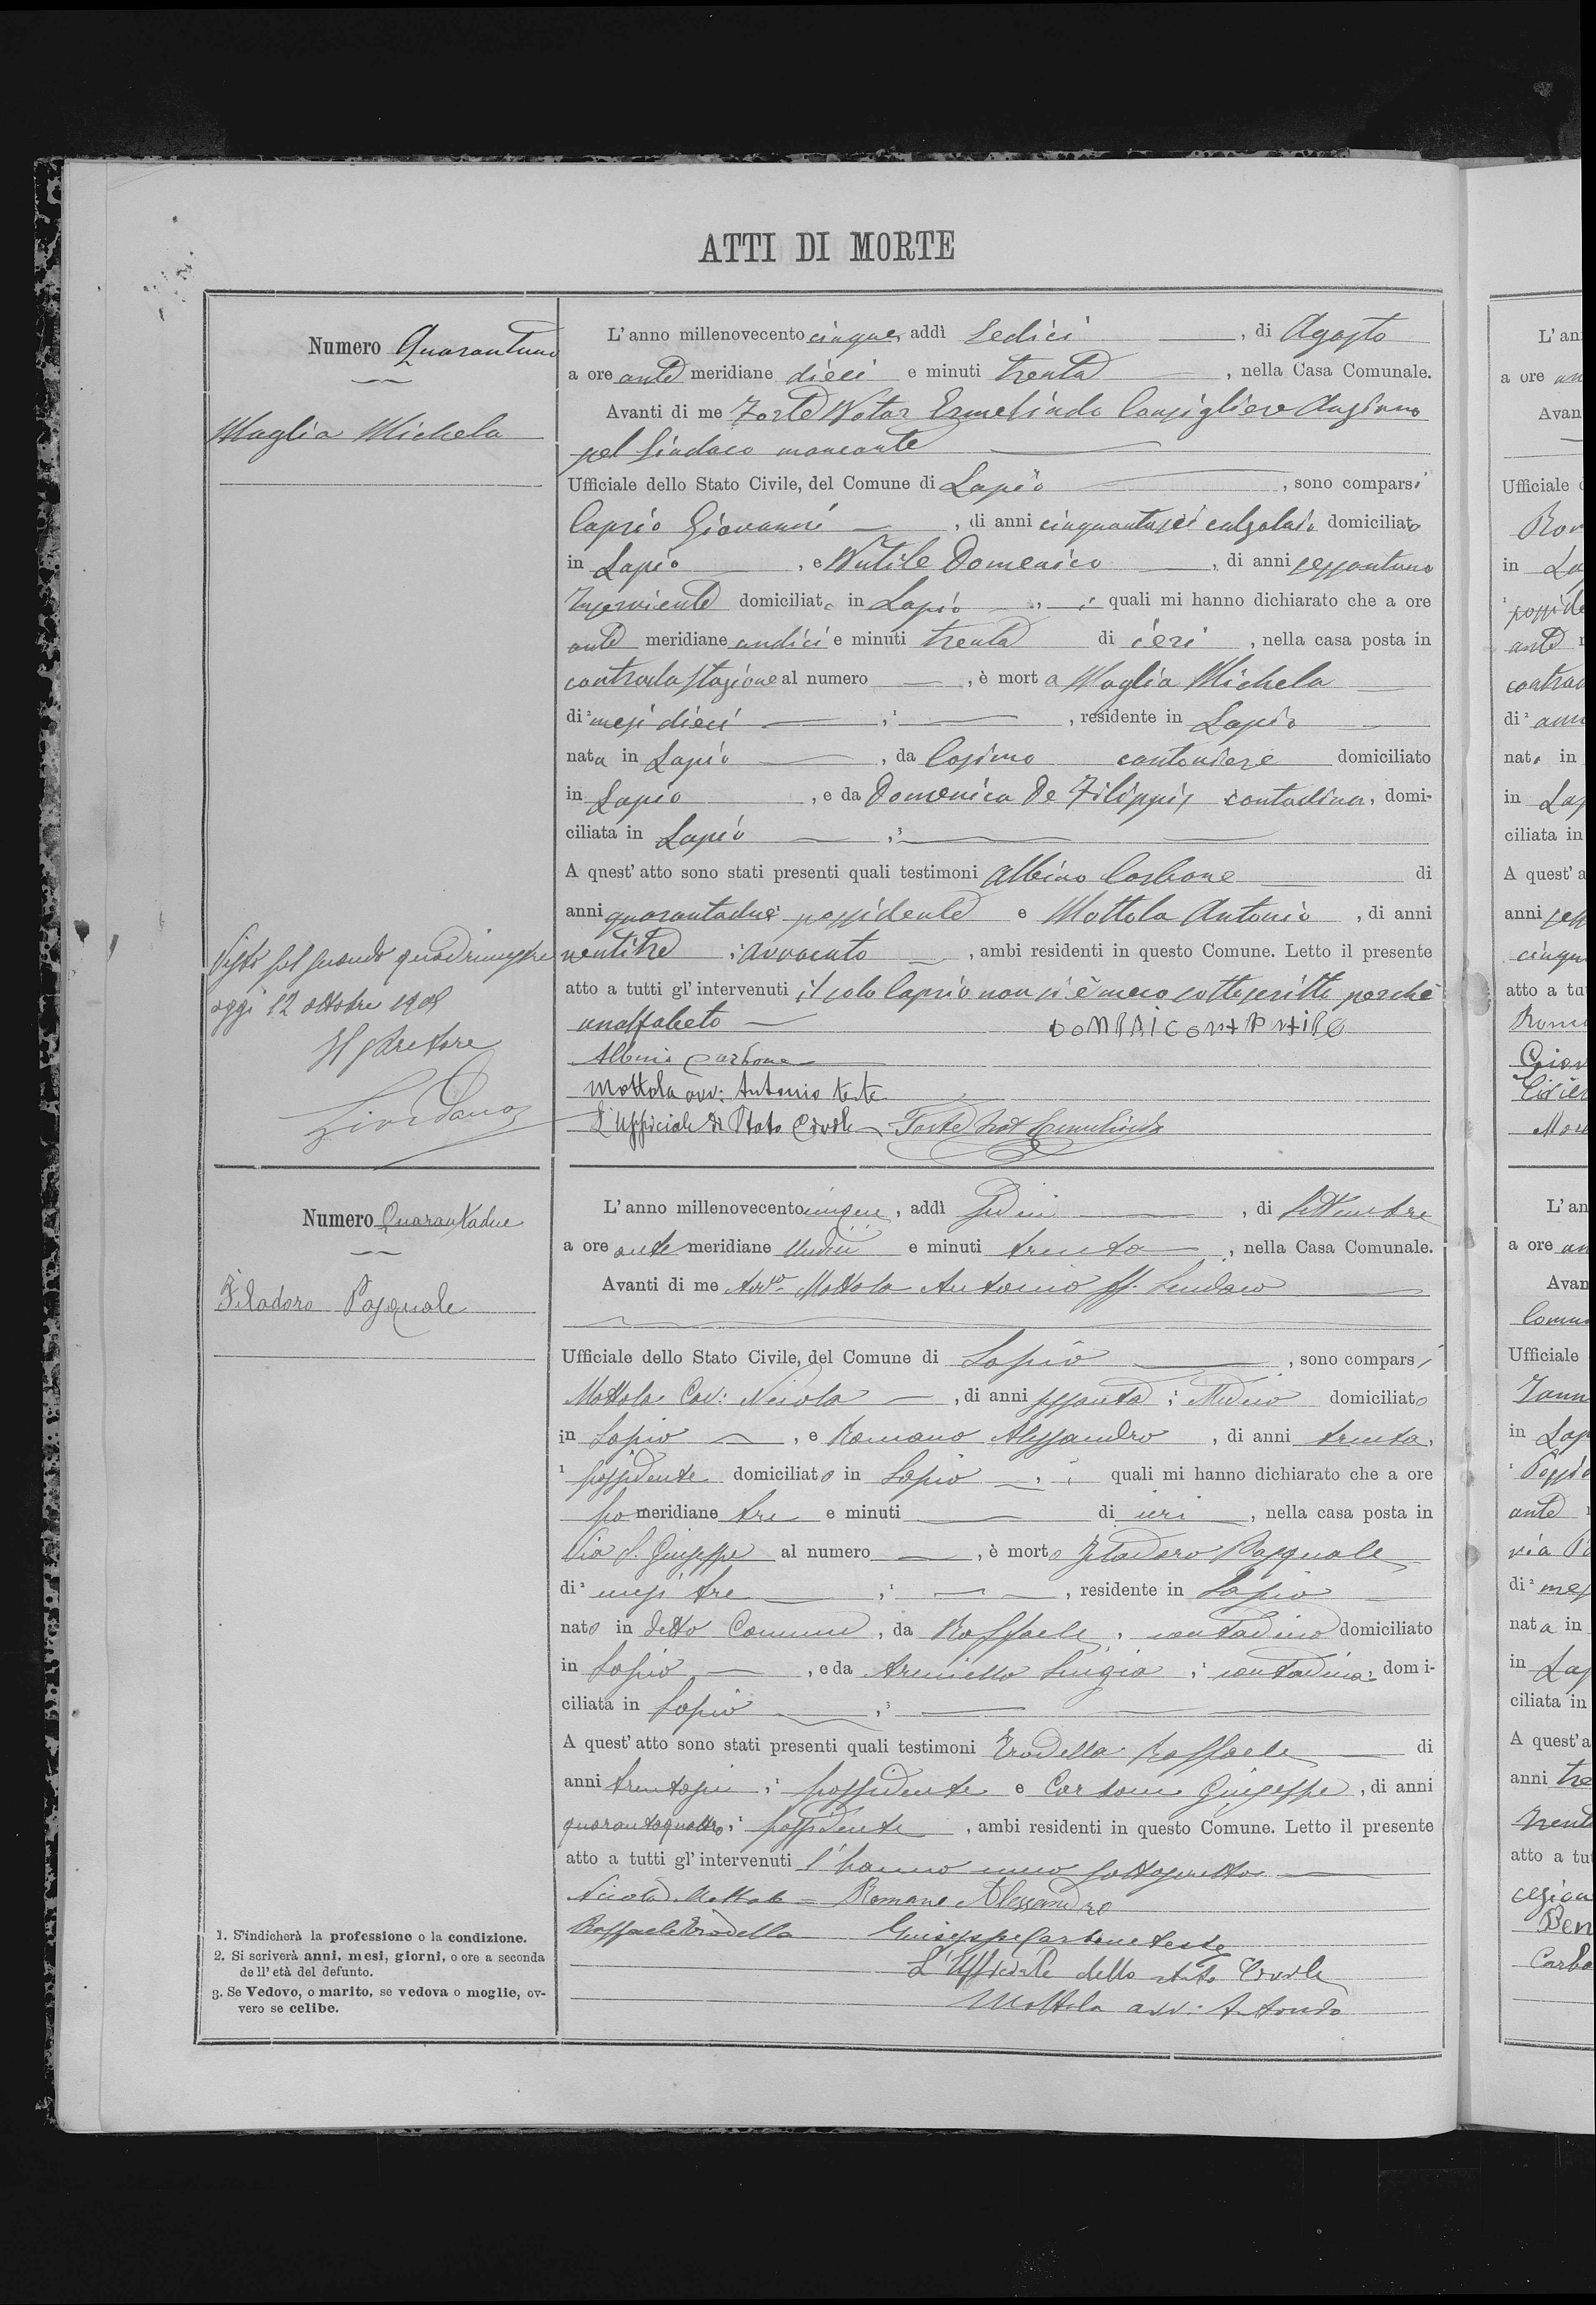 ATTI DI MORTE
Numero Quarantuno
Maglia Michela
Visto pel secondo quadrimestre
oggi 12 ottobre 1905
Il pretore
Giordano
L'anno millenovecento cinque, addì Sedici, di Agosto
a ore ante meridiane dieci e minuti trenta, nella Casa Comunale.
Avanti di me Forte Notar Ermelindo Consigliere Anziano
pel Sindaco mancante
Ufficiale dello Stato Civile, del Comune di Lapio, sono comparsi
Caprio Giovanni, di anni cinquantasei calzolaio domiciliato
in Lapio, e Nutile Domenico, di anni sessantuno
Inserviente domiciliato in Lapio, i quali mi hanno dichiarato che a ore
ante meridiane undici e minuti trenta di ieri, nella casa posta in
contrada stazione al numero, è morta Maglia Michela
di² mesi dieci, residente in Lapio
nata in Lapio, da Cosimo cantoniere domiciliato
in Lapio, e da Domenica De Filippis contadina, domi-
ciliata in Lapio ,³
A quest'atto sono stati presenti quali testimoni Albino Carbone di
anni quarantadue possidente e Mottola Antonio, di anni
ventitre, avvocato, ambi residenti in questo Comune. Letto il presente
atto a tutti gl'intervenuti il solo Caprio non si è meco sottoscritto perchè
analfabeto
Albino Carbone
Mottola avv: Antonio teste
L'Ufficiale di Stato Civile Forte Not Ermelindo
Numero Quarantadue
Filadoro Pasquale
L'anno millenovecento cinque, addì Sedici, di Settembre
a ore ante meridiane Undici e minuti trenta, nella Casa Comunale.
Avanti di me Avvo. Mottola Antonio ff. Sindaco
Ufficiale dello Stato Civile, del Comune di Lapio, sono comparsi
Mottola Cav: Nicola, di anni sessanta, Medico domiciliato
in Lapio, e Romano Alessandro, di anni trenta,
¹ possidente domiciliato in Lapio, i quali mi hanno dichiarato che a ore
po meridiane tre e minuti di ieri, nella casa posta in
Via S. Giuseppe al numero, è morto Filadoro Pasquale
di² mesi tre, residente in Lapio
nato in detto Comune, da Raffaele, contadino domiciliato
in Lapio, e da Arminello Luigia, contadina, domi-
ciliata in Lapio ,³
A quest'atto sono stati presenti quali testimoni Trodella Raffaele di
anni trentasei, possidente e Carbone Giuseppe, di anni
quarantaquattro, possidente, ambi residenti in questo Comune. Letto il presente
atto a tutti gl'intervenuti l'hanno meco sottoscritto
Nicola Mottola = Romano Alessandro
Raffaele Trodella Giuseppe Carbone teste
L'Ufficiale dello Stato Civile
Mottola avv. Antonio
1. S'indicherà la professione o la condizione.
2. Si scriverà anni, mesi, giorni, o ore a seconda
dell'età del defunto.
3. Se Vedovo, o marito, se vedova o moglie, ov-
vero se celibe.